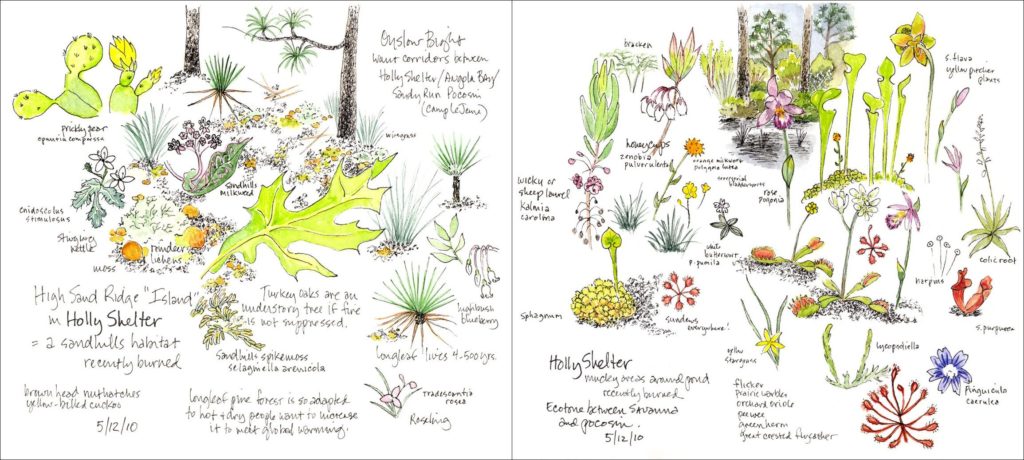 Onslow Bight
want corridors between
Holly Shelter/Angola Bay/
Sandy Run Pocosin
(Camp LeJeune)
prickly pear
opuntia compressa
wiregrass
sandhills
milkweed
cnidoscolus
stimulosus
stinging
nettle
moss
powdery
lichens
High Sand Ridge "Island"
in Holly Shelter
= a sandhills habitat
recently burned
Turkey oaks are an
understory tree if fire
is not suppressed.
highbush
blueberry
sandhills spikemoss
selaginella arenicola
longleaf lives 4-500 yrs.
brown head nuthatches
yellow-billed cuckoo
5/12/10
Longleaf pine forest is so adapted
to hot + dry people want to increase
it to meet global warming.
Tradescantia
rosea
Roseling
bracken
honeycups
zenobia
pulverulenta
orange milkwort
polygala lutea
terrestrial
bladderworts
rose
pogonia
s. flava
yellow pitcher
plants
wicky or
sheep laurel
Kalmia
carolina
white
butterwort
p. pumila
colic root
sphagnum
sundews
everywhere!
s. purpurea
yellow
stargrass
lycopodiella
Pinguicula
caerulea
Holly Shelter
mucky areas around pond
recently burned
Ecotone between Savanna
and pocosin.
5/12/10
flicker
Prairie warbler
orchard oriole
peewee
green heron
great crested flycatcher